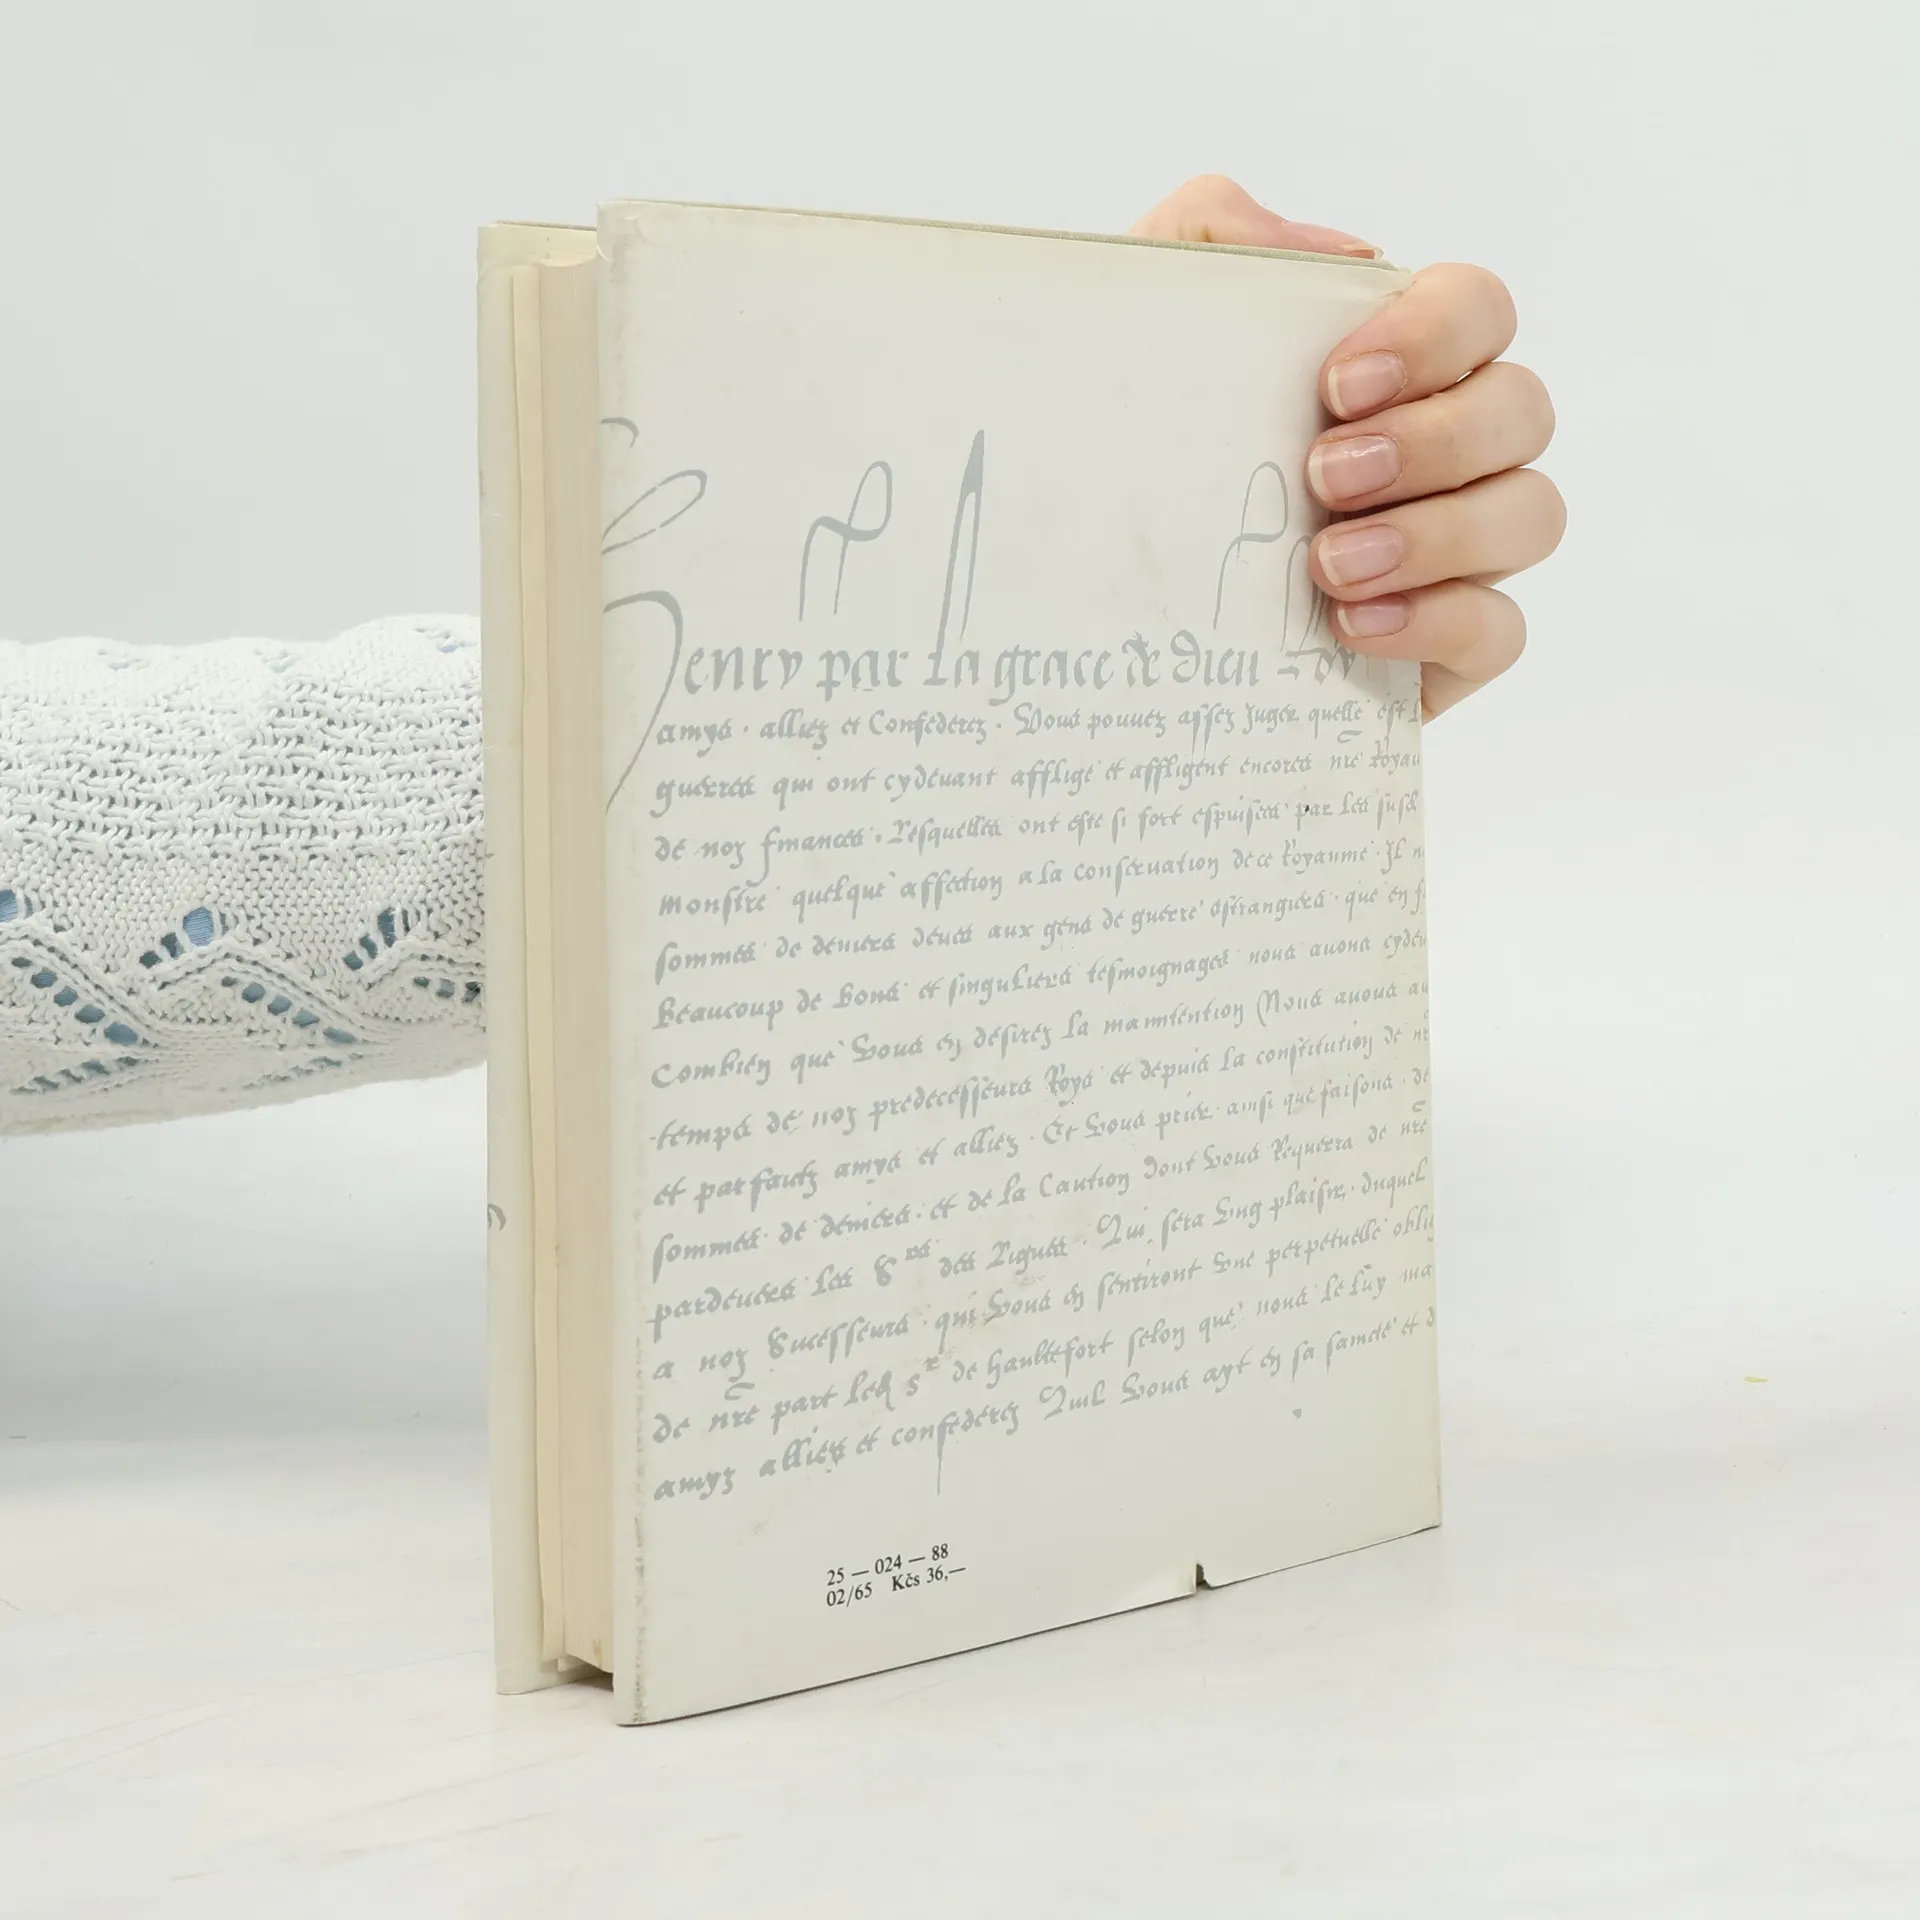 Henry par la grace de dieu Roy
amys . alliez et Confederez . Vous pouuez assez Juger quelle est
guerres qui ont cydeuant affligé et affligent encores nre Royau
de noz finances . Lesquelles ont esté si fort espuisées par les
monstré quelque affection a la conseruation de ce Royaume . Il
sommes de deniers deues aux gens de guerre estrangiers . que en
Beaucoup de bons et singuliers tesmoignages nous auons cydeu
Combien que vous en desirez la manutention Nous auons au
temps de noz predecesseurs Roys et depuis la constitution de
et parfaitz amys et alliez . Et vous prier . ainsi que faisons . de
sommes de deniers . et de la Caution dont vous Requerra de nre
pardeuers les Srs des Ligues . Qui sera vng plaisir . duquel
a noz Sucesseurs . qui vous en sentiront vne perpetuelle oblig
de nre part led Sr de haultefort selon que nous le luy
amyz alliez et confederez Quil vous ayt en sa saincte et
25 — 024 — 88
02/65 Kčs 36,—